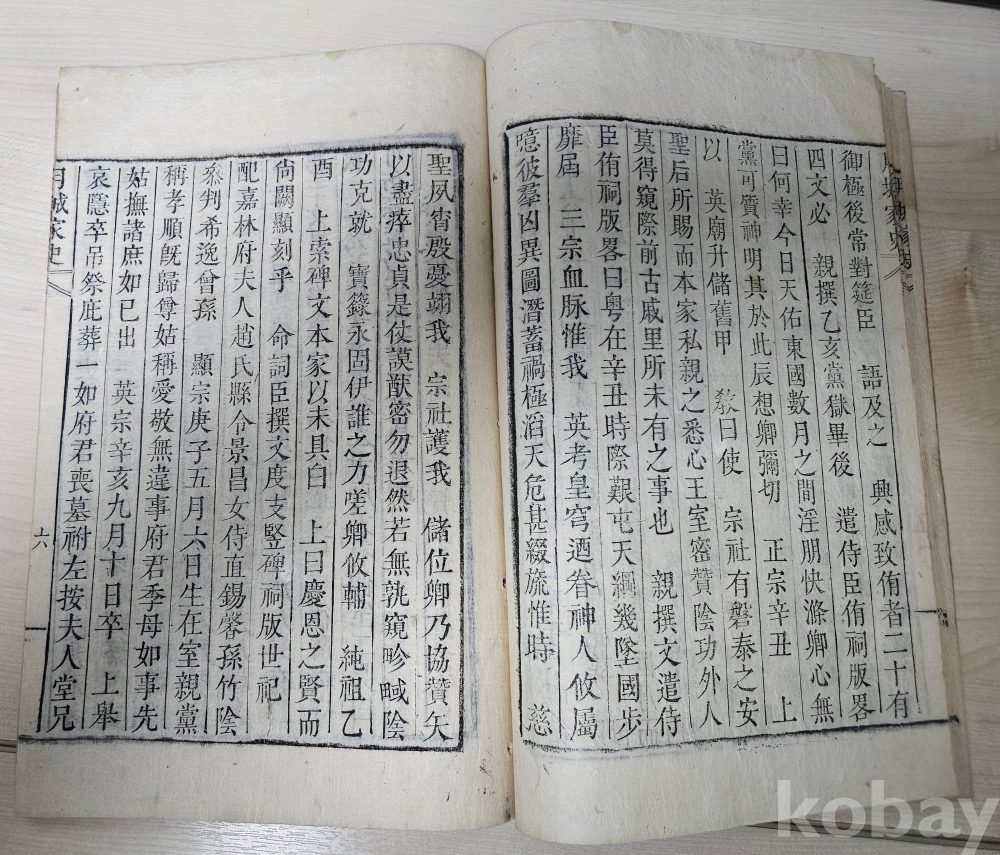 御極後常對筵臣　語及之　興感致侑者二十有
四文必　親撰乙亥黨獄畢後　遣侍臣侑祠版畧
曰何幸今日天佑東國數月之間淫朋快滌卿心無
黨可質神明其於此辰想卿彌切　正宗辛丑　上
以　英廟升儲舊甲　教曰使　宗社有磐泰之安
聖后所賜而本家私親之悉心王室密贊陰功外人
莫得窺際前古戚里所未有之事也　親撰文遣侍
臣侑祠版畧曰粤在辛丑時際艱屯天綱幾墜國步
靡屆　三宗血脉惟我　英考皇穹迺眷神人攸屬
噫彼羣凶異圖潛蓄禍極滔天危甚綴旒惟時　慈
聖夙宵殷憂翊我　宗社護我　儲位卿乃協贊矢
以盡瘁忠貞是仗謨猷密勿退然若無孰窺畛畦陰
功克就　寶籙永固伊誰之力嗟卿攸輔　純祖乙
酉　上索碑文本家以未具白　上曰慶恩之賢而
尙闕顯刻乎　命詞臣撰文度支竪碑祠版世祀
配嘉林府夫人趙氏縣令景昌女侍直錫馨孫竹陰
叅判希逸曾孫　顯宗庚子五月六日生在室親黨
稱孝順旣歸尊姑稱愛敬無違事府君季母如事先
姑撫諸庶如已出　英宗辛亥九月十日卒　上舉
哀隱卒吊祭庇葬一如府君喪墓祔左按夫人堂兄
月城家史
六
kobay